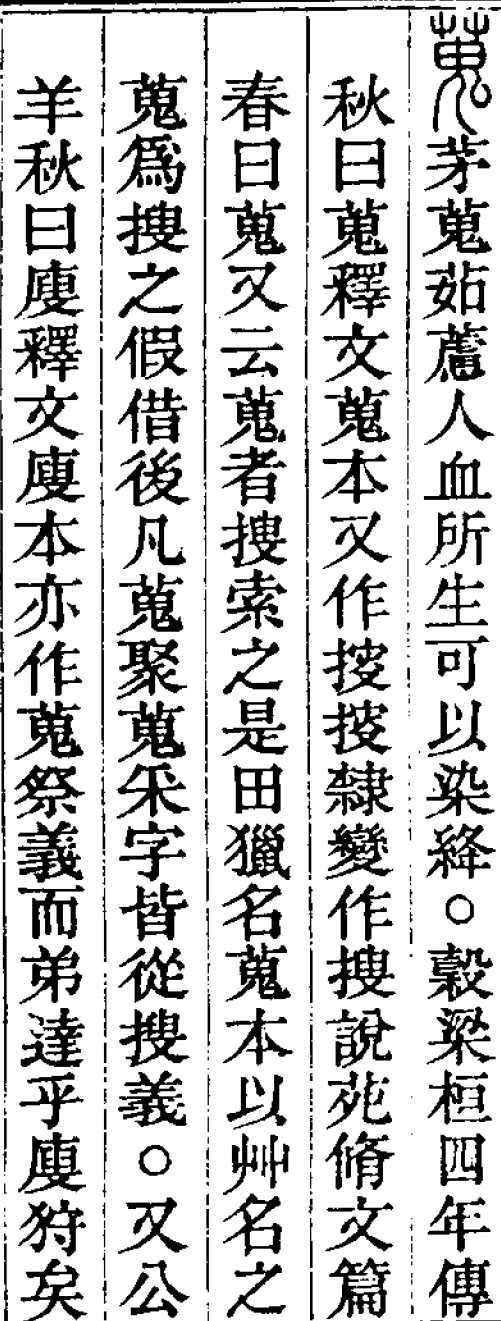 蒐茅蒐茹藘人血所生可以染絳○穀梁桓四年傳
秋曰蒐釋文蒐本又作㛐㛐隸變作搜說苑脩文篇
春曰蒐又云蒐者搜索之是田獵名蒐本以艸名之
蒐爲搜之假借後凡蒐聚蒐采字皆從搜義○又公
羊秋曰廋釋文廋本亦作蒐祭義而弟達乎廋狩矣